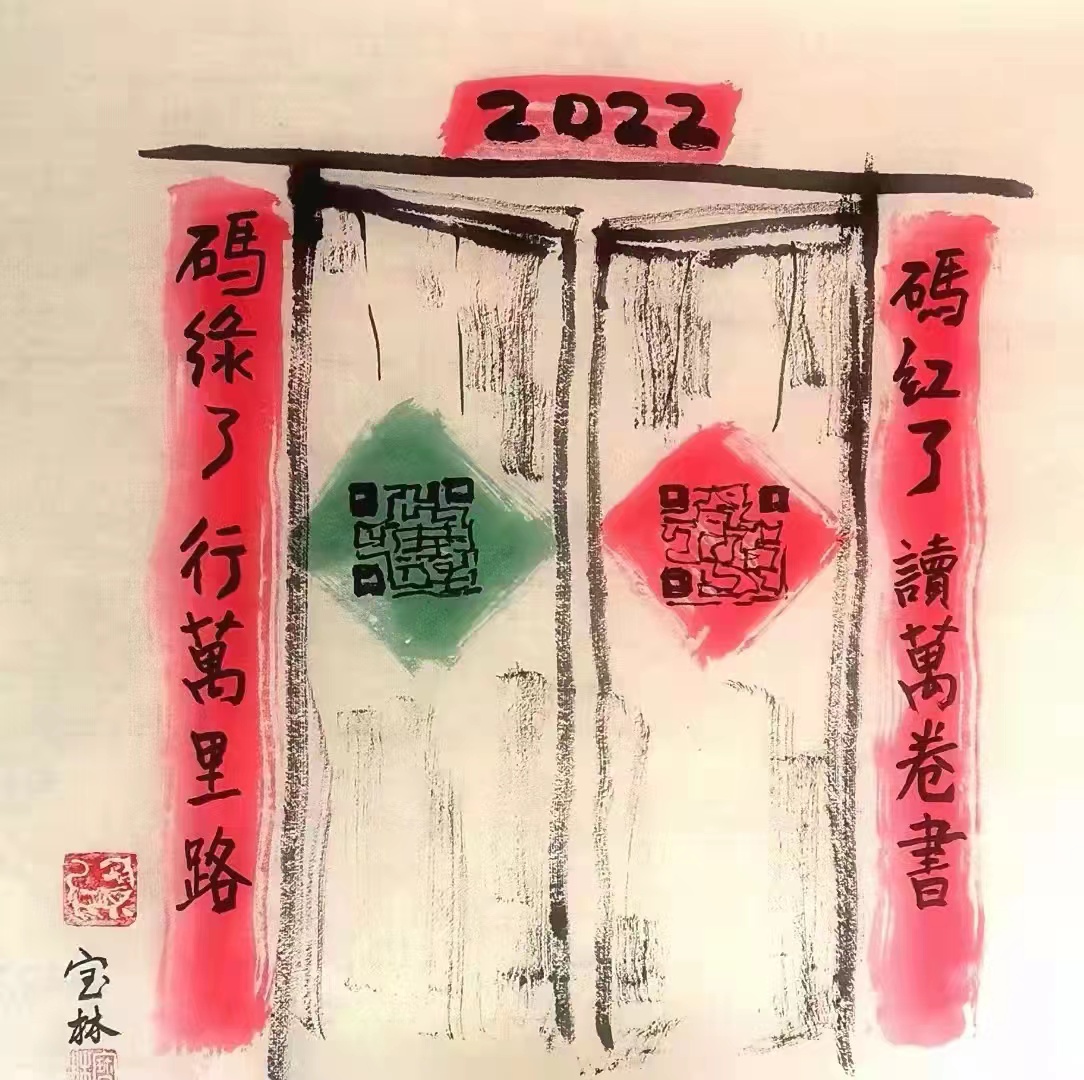 2022
碼紅了 讀萬卷書
碼綠了 行萬里路
宝林